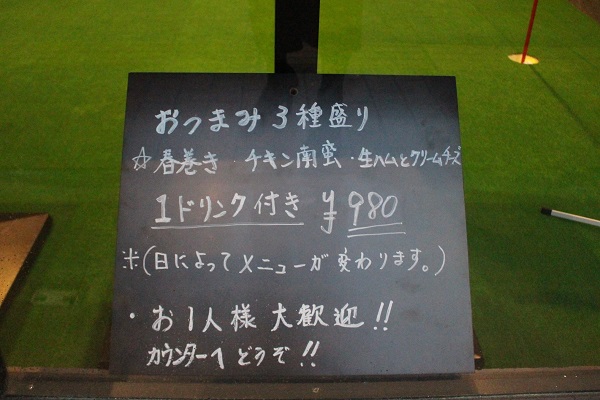 おつまみ3種盛り
☆春巻き・チキン南蛮・生ハムとクリームチーズ
1ドリンク付き ¥980
※(日によってメニューが変わります。)
・お1人様 大歓迎!!
カウンターへどうぞ!!